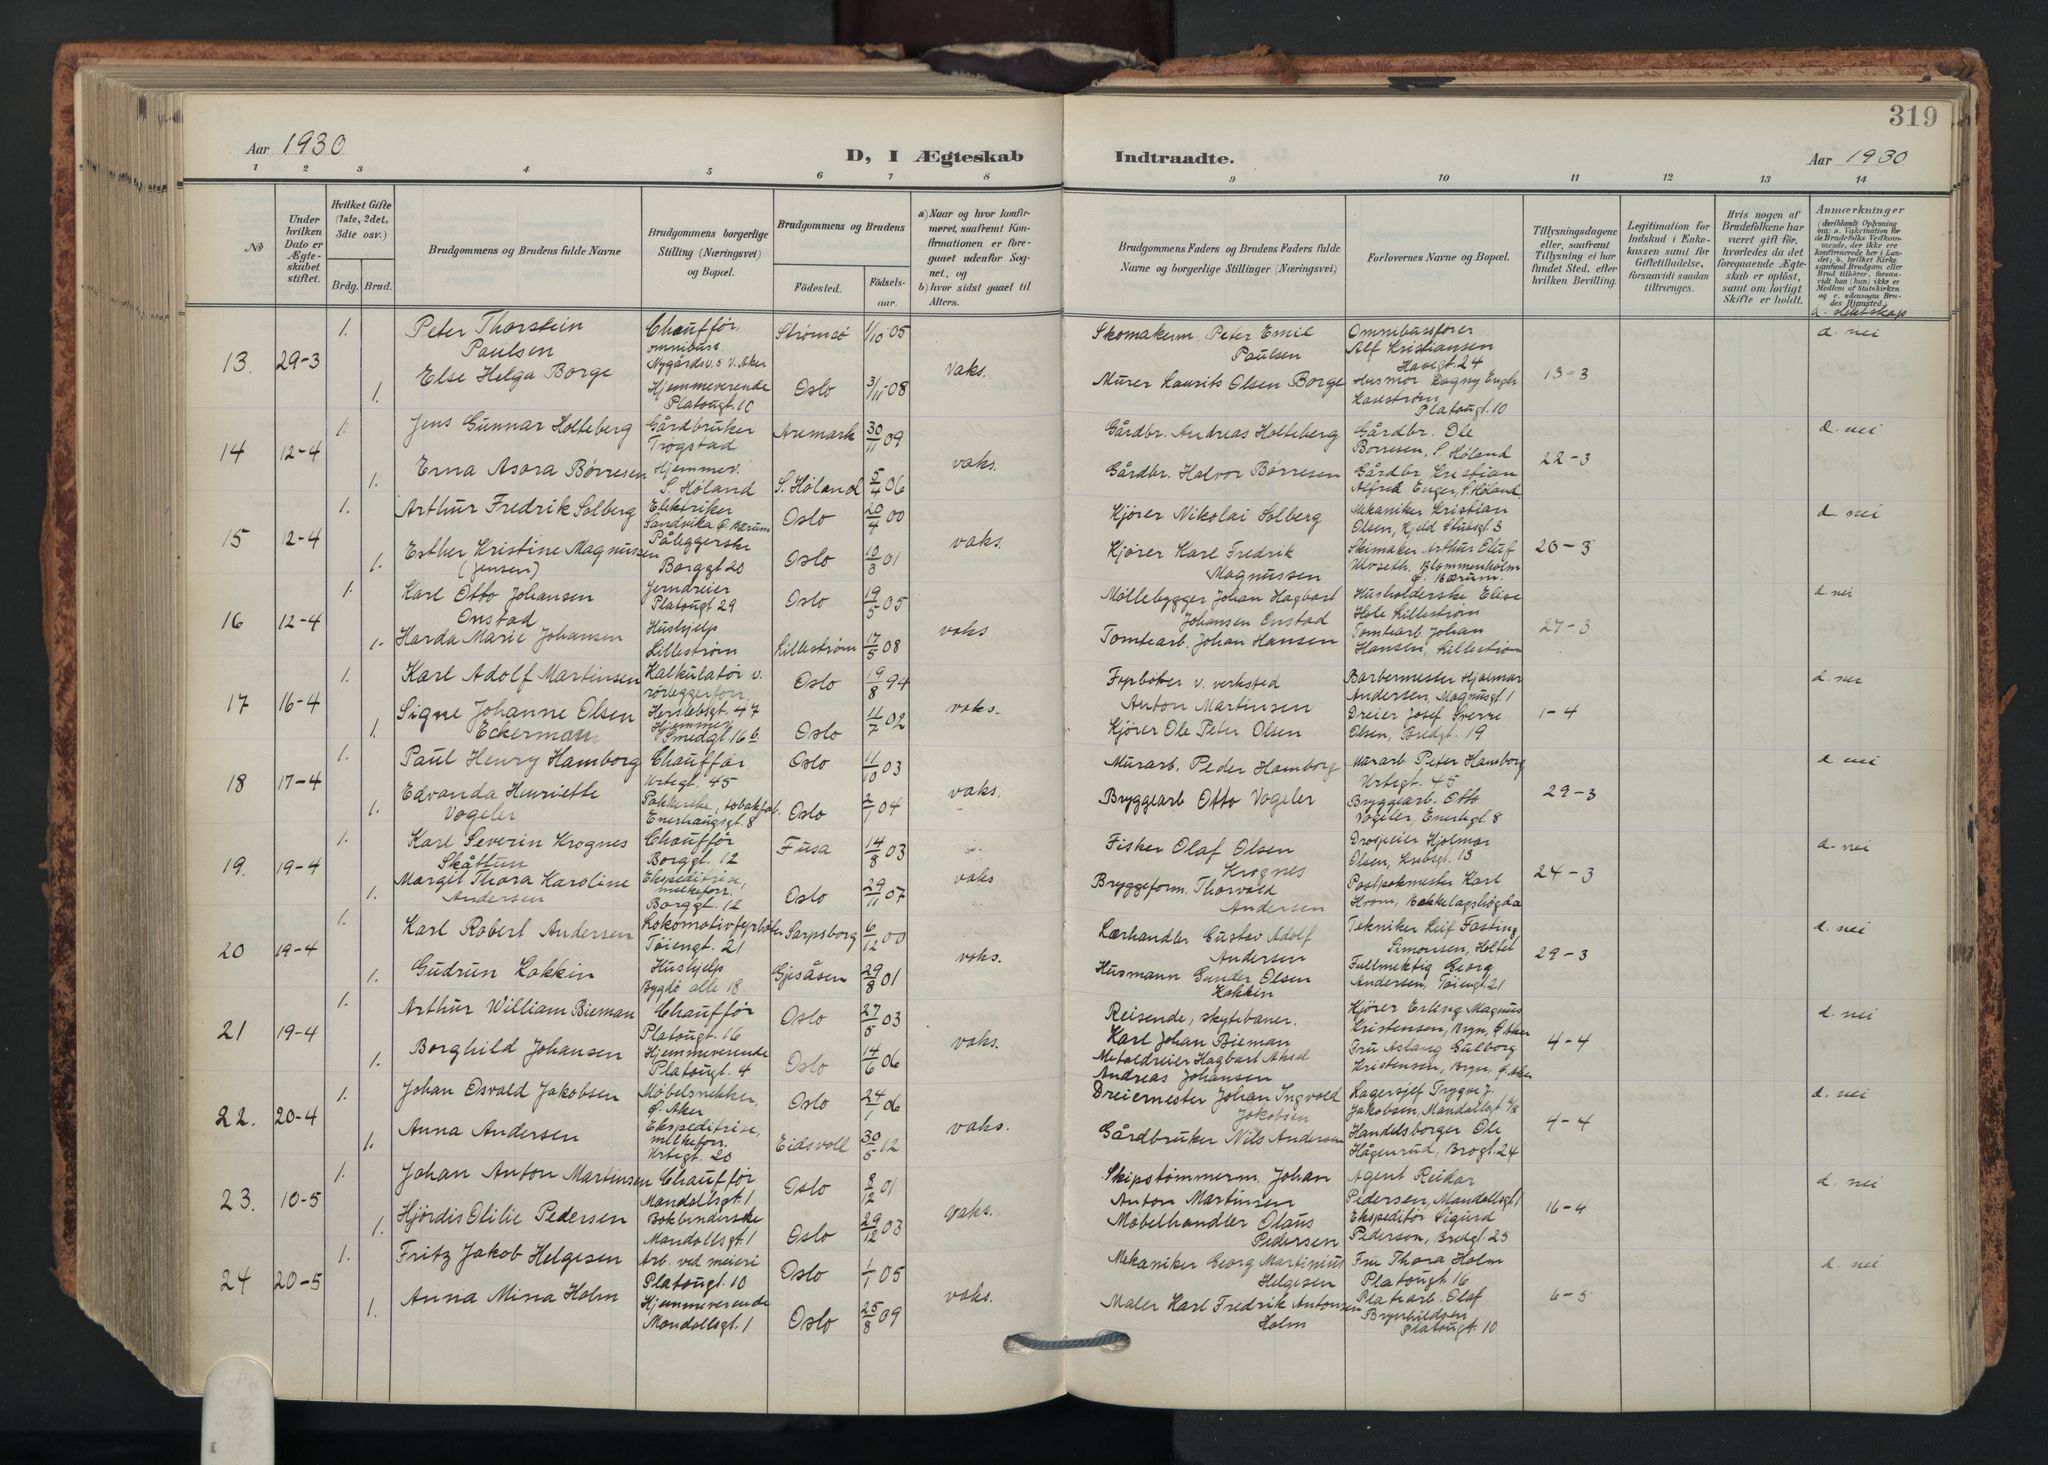 319
Aar 1930
D, I Ægteskab Indtraadte.
Aar 1930
1 2 3 4 5 6 7 8 9 10 11 12 13 14
No
Under hvilken Dato er Ægteskabet stiftet.
Hvilket Gifte (1ste, 2det, 3die osv.)
Brdg. Brud.
Brudgommens og Brudens fulde Navne
Brudgommens borgerlige Stilling (Næringsvei) og Bopæl.
Brudgommens og Brudens
Fødested.
Fødselsaar.
a) Naar og hvor konfirmeret, saafremt Konfirmationen er foregaaet udenfor Sognet, og
b) hvor sidst gaaet til Alters.
Brudgommens Faders og Brudens Faders fulde Navne og borgerlige Stillinger (Næringsvei)
Forlovernes Navne og Bopæl.
Tillysningsdagene eller, saafremt Tillysning ei har fundet Sted, efter hvilken Bevilling.
Legitimation for Indskud i Enkekassen samt for Giftetilladelse, forsaavidt saadan tiltrænges.
Hvis nogen af Brudefolkene har været gift før, hvorledes da det foregaaende Ægteskab er opløst, samt om lovligt Skifte er holdt.
Anmærkninger
(deriblandt Oplysning om: a. Vakcination for de Brudefolks Vedkommende, der ikke ere konfirmerede her i Landet; b. hvilket Kirkesamfund Brudgom eller Brud tilhører, forsaavidt han (hun) ikke er Medlem af Statskirken og c. udensogns Brudes Hjemsted.
d. slektskap
13. 29-3 1. Peter Thorstein Paulsen Chauffør omnibuss. Nygårdsv. 5 V. Aker Strømsø 1/10 05 Skomakerm. Peter Emil Paulsen Omnibussfører Alf Kristiansen Havegt. 24 d. nei
1. Else Helga Borge Hjemmeverende Platougt. 10 Oslo 3/11-08 vaks. Murer Laurits Olsen Borge Husmor Dagny Engh Karlstrøm, Platougt. 10 13-3
14 12-4 1. Jens Gunnar Holteberg Gårdbruker Trøgstad Aremark 30/11 09 Gårdbr. Andreas Holteberg Gårdbr. Ole Børresen, S. Høland d. nei
1. Erna Asora Børresen Hjemmev. S. Høland S. Høland 5/4 06 vaks. Gårdbr. Halvor Børresen Gårdbr. Kristian Alfred Enger, S. Høland 22-3
15 12-4 1. Arthur Fredrik Solberg Elektriker Sandvika Ø. Bærum Oslo 20/4 00 Kjører Nikolai Solberg Mekaniker Kristian Olsen, Kjeld Stubsgt. 3 d. nei
1. Esther Kristine Magnussen (Jensen) Påleggerske Borggt 20 Oslo 10/3 01 vaks. Kjører Karl Fredrik Magnussen Skimaker Arthur Oluf Ulvseth. Blommenholm Ø. Bærum. 20-3
16 12-4 1. Karl Otto Johansen Onstad Jerndreier Platougt 29 Oslo 19/5 05 Møllebygger Johan Hagbart Johansen Onstad Husholderske Elise Hole Lillestrøm d nei
1. Harda Marie Johansen Hushjelp Lillestrøm Lillestrøm 17/5 08 vaks Tomtearb. Johan Hansen Tomtearb. Johan Hansen, Lillestrøm 27-3
17 16-4 1. Karl Adolf Martinsen Kalkulatør v. rørleggerforr. Herslebsgt. 47 Oslo 19/8 94 Fyrbøter v. verksted Anton Martinsen Barbermester Hjalmar Andersen, Magnusgt. 1 d. nei
1. Signe Johanne Olsen Eckermann Hjemmev. Smedgt. 16 b. Oslo 11/7 02 vaks. Kjører Ole Peter Olsen Dreier Josef Sverre Olsen, Bredgt. 19 1-4
18 17-4 1. Paul Henry Hamborg Chauffør Urtegt. 45 Oslo 11/10 03 Murarb. Peder Hamborg Murarb Peter Hamborg Urtegt. 45 d nei
1. Edvanda Henriette Vogeler Pakkerske, tobakfab. Enerhaugsgt. 8 Oslo 2/1 04 vaks. Bryggearb Otto Vogeler Bryggearb. Otto Vogeler, Enerhgt. 8 29-3
19. 19-4 1. Karl Severin Krognes Skåttun Chauffør Borggt. 12 Fusa 14/8 03 Fisker Olaf Olsen Krognes Drosjeeier Hjalmar Olsen, Krebsgt. 13 d. nei
1. Margit Thora Karoline Andersen Ekspeditrise, melkeforr. Borggt. 12 Oslo 29/11 07 vaks Bryggeform. Thorvald Andersen Postpakmester Karl Hrom, Bekkelagshøgda 24-3
20 19-4 1. Karl Robert Andersen Lokomotivfyrbøter Tøiengt. 21 Sarpsborg 6/12 00 Lærhandler Gustav Adolf Andersen Tekniker Leif Fasting Simonsen, Holtet d. nei
1. Gudrun Kokkin Hushjelp Bygdø alle 18. Gjesåsen 29/8 01 vaks. Husmann Gunder Olsen Kokkin Fullmektig Georg Andersen, Tøiengt. 21 29-3
21 19-4 1. Arthur William Bieman Chauffør Platougt. 16 Oslo 27/5 03 Reisende, skytebaner. Karl Johan Bieman Kjører Erling Magnus Kristensen, Bryn, Ø. Aker d. nei
1. Borghild Johansen Hjemmeverende Platougt. 4 Oslo 14/6 06 vaks. Metaldreier Hagbart Aksel Andreas Johansen Fru Aslaug Gulborg Kristensen, Bryn, Ø. Aker 4-4
22. 20-4 1. Johan Osvald Jakobsen Møbelsnekker, Ø. Aker Oslo 24/1 06 Dreiermester Johan Ingvald Jakobsen Lagersjef Trygve J. Jakobsen, Mandallsgt 6/8 d. nei
1. Anna Andersen Ekspeditrise, melkeforr. Urtegt. 20 Eidsvoll 30/5 12 vaks. Gårdbruker Nils Andersen Handelsborger Ole Hågenrud, Brogt. 24 4-4
23. 10-5 1. Johan Anton Martinsen Chauffør Mandallsgt. 1 Oslo 8/12 01 Skipstømmerm. Johan Anton Martinsen Agent Reidar Pedersen, Mandallsgt 1 d. nei
1. Hjørdis Olilie Pedersen Bokbinderske Mandallsgt. 1 Oslo 29/12 03 vaks. Møbelhandler Olaus Pedersen Ekspeditør Sigurd Pedersen, Bredgt. 25 16-4
24 20-5 1. Fritz Jakob Helgesen Arb. ved meieri Platougt. 10 Oslo 1/1 05 Mekaniker Georg Martinius Helgesen Fru Thora Holm Platougt. 16 d. nei
1. Anna Mina Holm Hjemmeverende Mandallsgt. 1 Oslo 25/8 09 vaks. Maler Karl Fredrik Antonsen Holm Platearb. Olaf Brynhildsen Platougt. 10 6-5